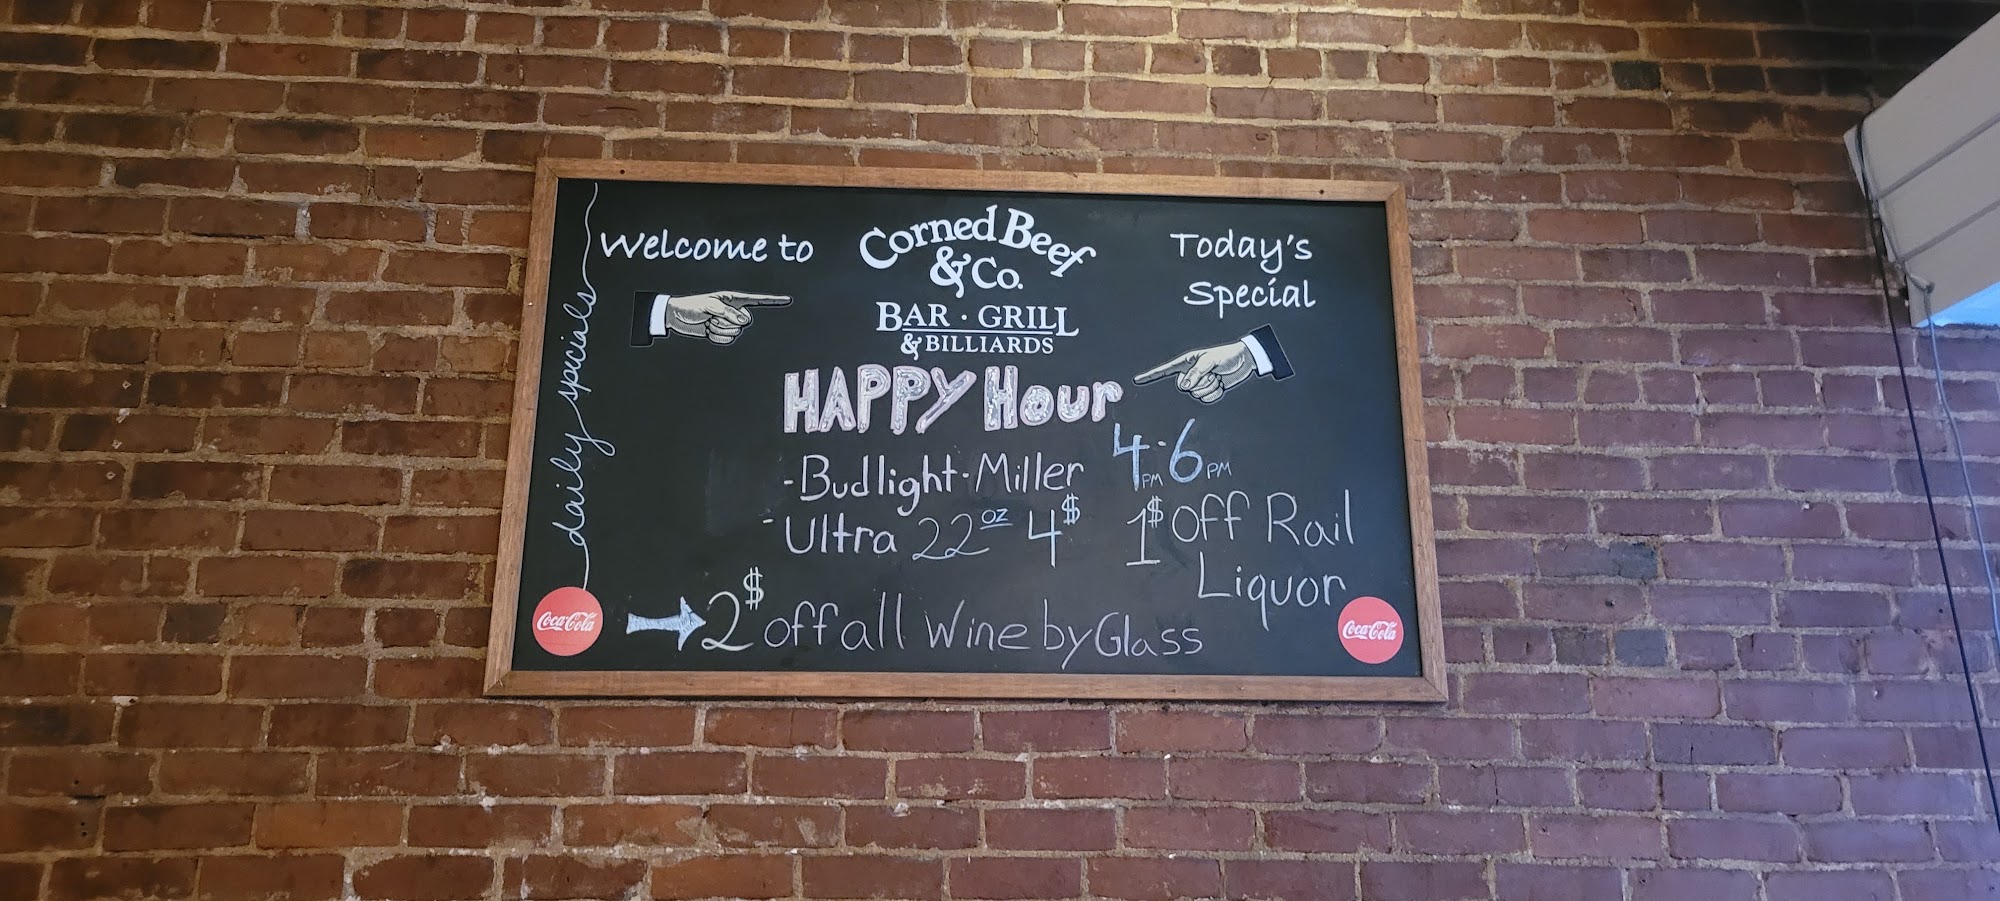 daily specials
Welcome to
Corned Beef
& Co.
BAR · GRILL
& BILLIARDS
Today's
Special
HAPPY Hour
4PM - 6PM
- Budlight · Miller
- Ultra 22 oz 4$
1$ off Rail
Liquor
2$ off all Wine by Glass
Coca-Cola
Coca-Cola